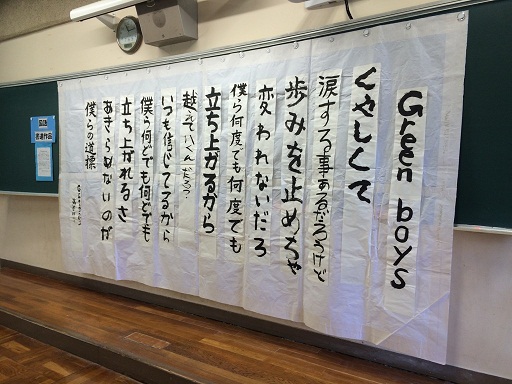 Green boys
くやしくて
涙する事あるだろうけど
歩みを止めちゃ
変われないだろ
僕ら何度でも何度でも
立ち上がるから
越えていくんだろう?
いつも信じてるから
僕ら何どでも何どでも
立ち上がれるさ
あきらめないのが
僕らの道標
書道作品